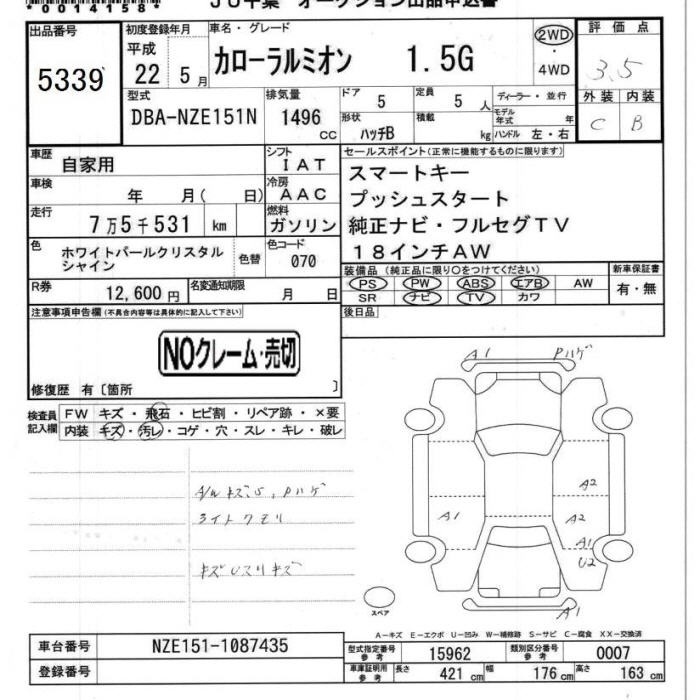 00141581
JU千葉 オークション出品申込書
出品番号
5339
初度登録年月
平成
22 5月
車名・グレード
カローラルミオン 1.5G
2WD
・
4WD
評価点
3.5
外装 内装
C B
型式
DBA-NZE151N
排気量
1496
CC
ドア
5
定員
5人
ディーラー・並行
モデル年式 年
形状
ハッチB
積載
kg
ハンドル 左・右
車歴
自家用
シフト
IAT
セールスポイント(正常に機能するものに限ります)
スマートキー
プッシュスタート
純正ナビ・フルセグTV
18インチAW
車検
年 月( 日)
冷房
AAC
走行
7万5千531 km
燃料
ガソリン
色
ホワイトパールクリスタル
シャイン
色替
色コード
070
装備品(純正品に限り○をつけてください)
PS PW ABS エアB AW
SR ナビ TV カワ
新車保証書
有・無
R券
12,600円
名変通知期限
月 日
後日品
注意事項申告欄(不具合内容等は具体的に記入して下さい)
NOクレーム・売切
修復歴 有〔箇所 〕
検査員
記入欄
FW キズ・飛石・ヒビ割・リペア跡・×要
内装 キズ・汚レ・コゲ・穴・スレ・キレ・破レ
A/W キズ、Pハゲ
ライトクモリ
キズUスリキズ
A1 Pハゲ
A2
A1
A2
A1
U2
A1
スペア
A-キズ E-エクボ U-凹み W-補修跡 S-サビ C-腐食 XX-交換済
車台番号
NZE151-1087435
登録番号
型式指定番号
参考
15962
類別区分番号
参考
0007
車庫証明用
参考
長さ
421 cm
幅
176 cm
高さ
163 cm